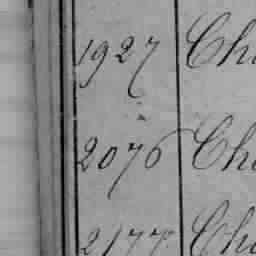 1927 Cha
2076 Cha
2177 Cha